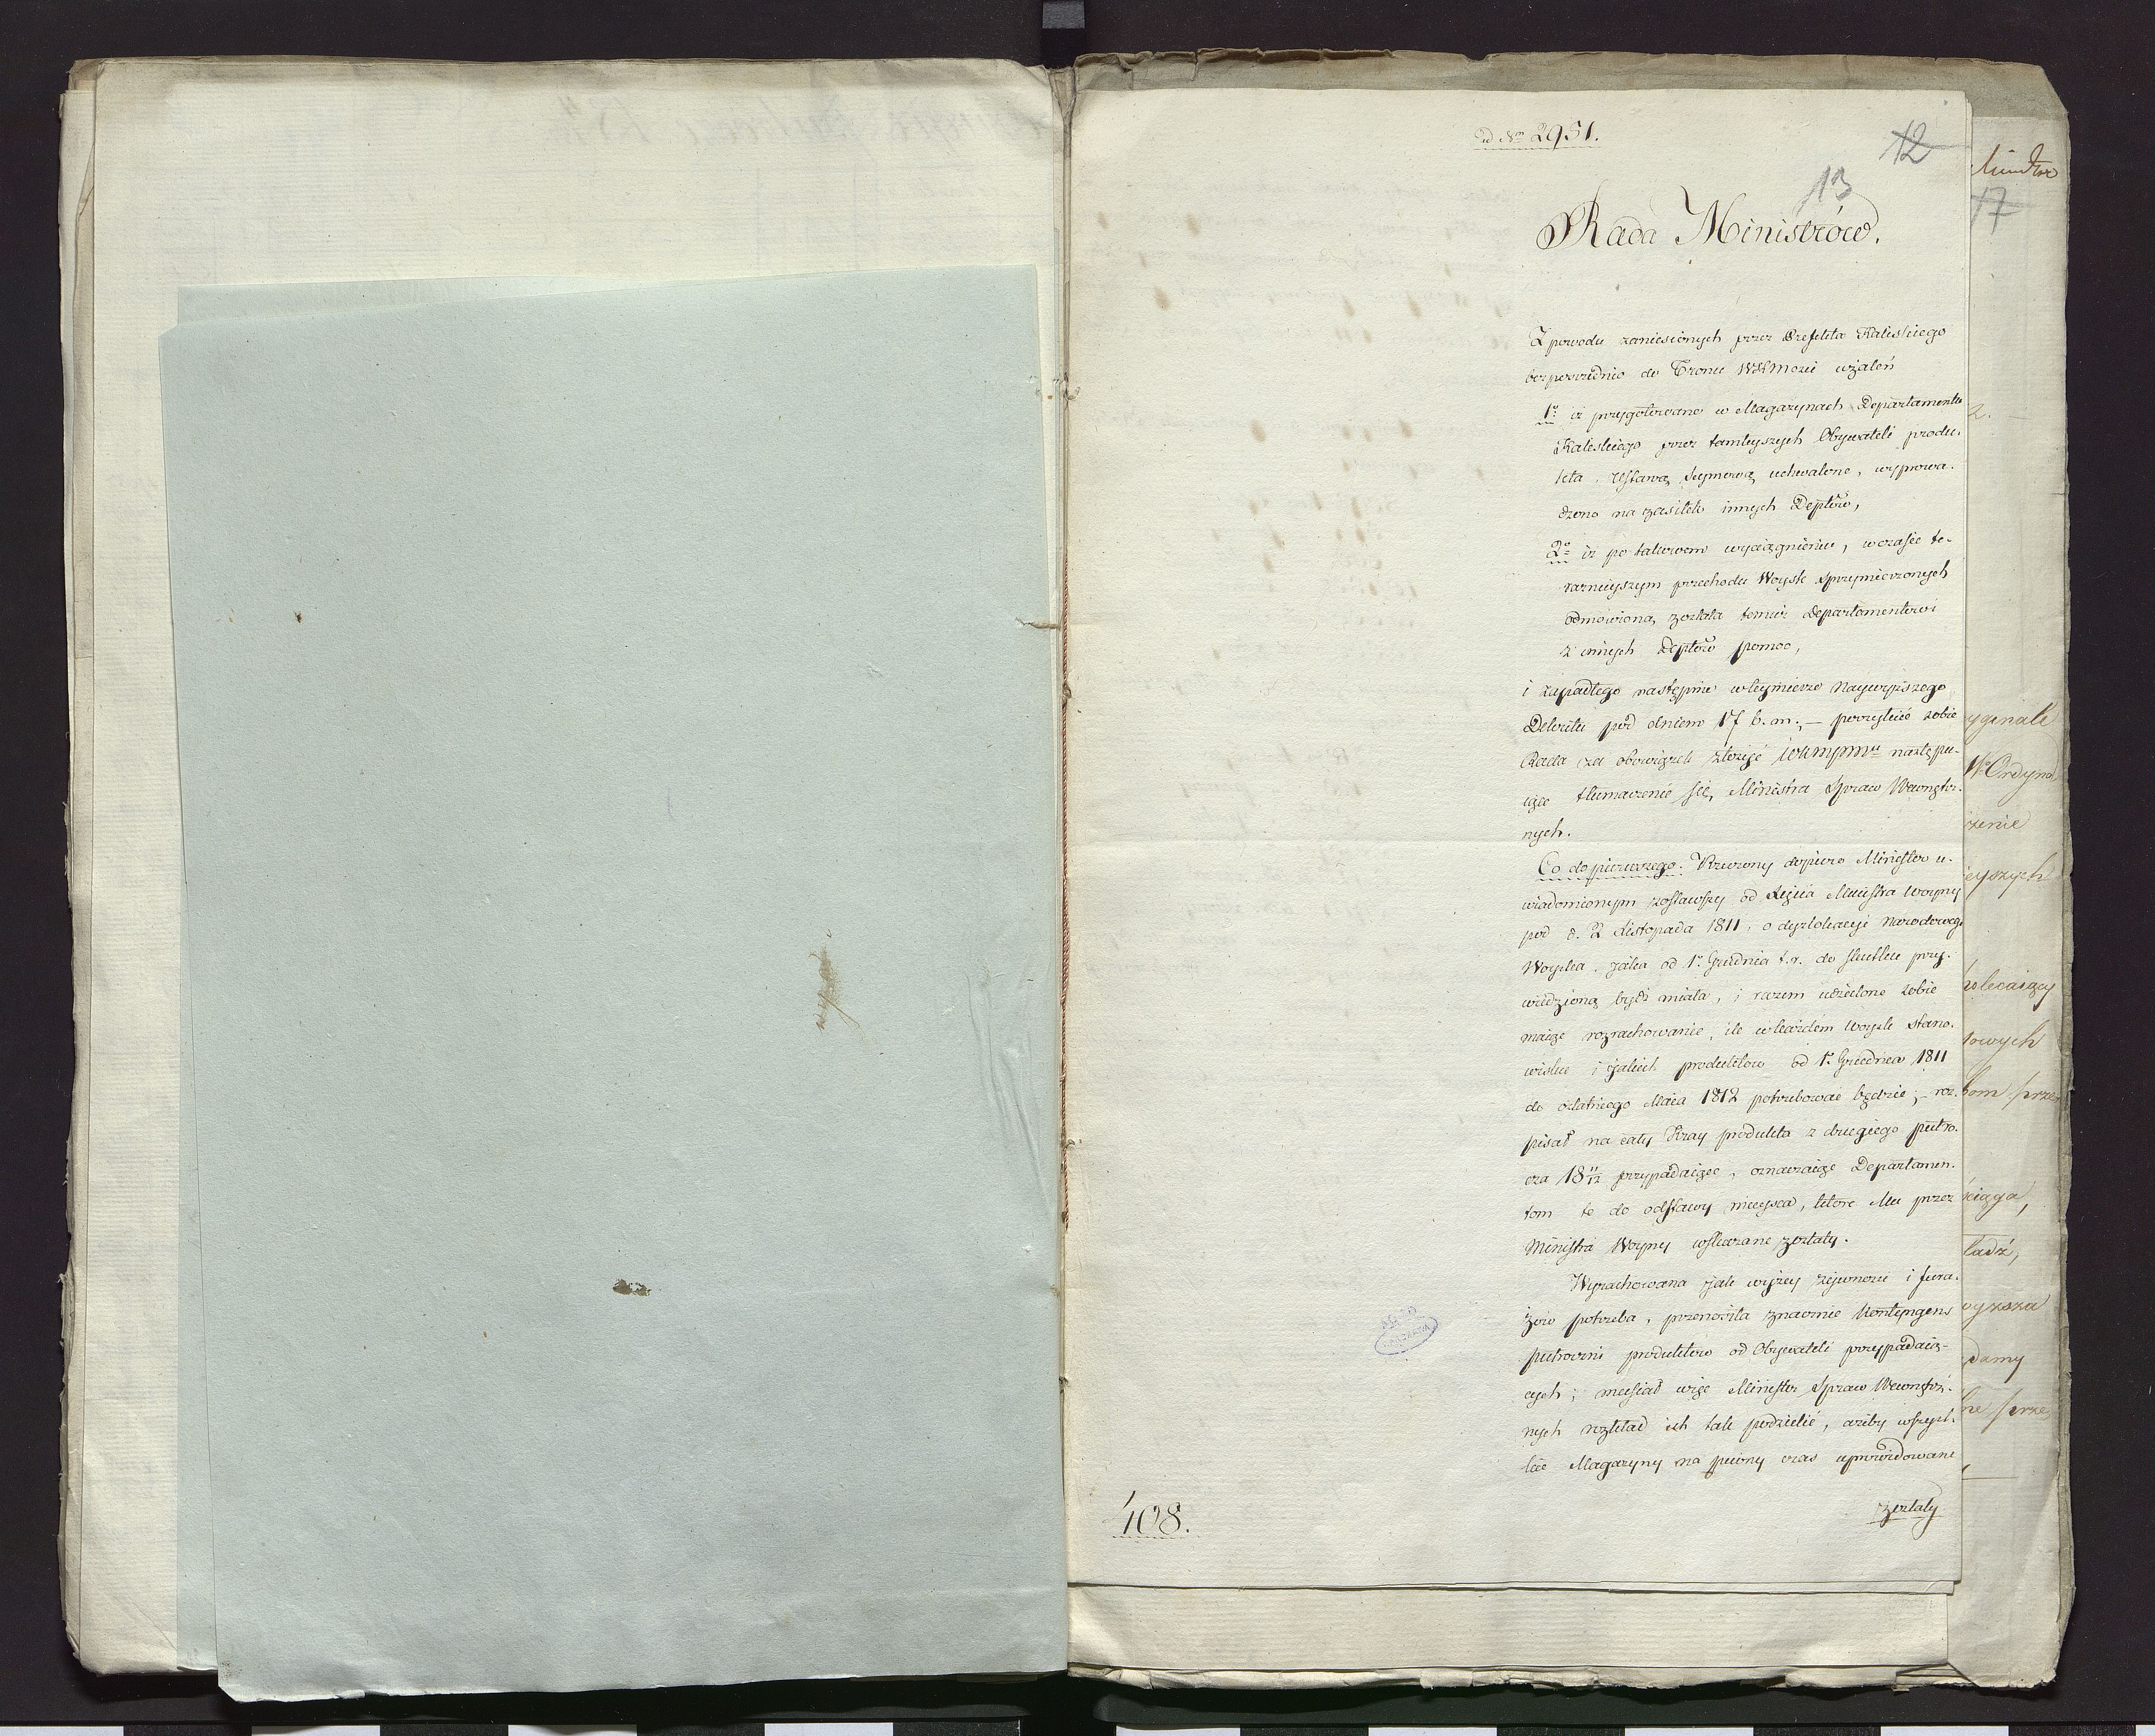 ad Nm 2951.
12
13
Rada Ministrów.
Z powodu zaniesionych przez Prefekta Kaliskiego
bezpośrednio do Tronu WKMości użaleń
1o iż przygotowane w Magazynach Departamentu
Kaliskiego przez tamteyszych Obywateli produ-
kta, Ustawą Seymową uchwalone, wyprowa-
dzono na zasiłek innych Deptów,
2o iż po takowem wyciągnieniu, w czasie te-
raznieyszym przechodu Woysk Sprzymierzonych
odmówioną została temuż Departamentowi
z innych Deptów pomoc,
i zapadłego następnie w teymierze Naywyższego
Dekretu pod dniem 17 b. m. – poczytuie sobie
Rada za obowiązek złożyć WKMPMu następu-
iące tłumaczenie się Ministra Spraw Wewnętrz-
nych.
Co do pierwszego. Rzeczony dopiero Minister u-
wiadomionym zostawszy od Xięcia Ministra Woyny
pod d. 2 Listopada 1811, o dyzlokacyi Narodowego
Woyska, jaka od 1o Grudnia t. r. do skutku przy-
wiedzioną bydź miała, i razem udzielone sobie
maiąc rozrachowanie, ile w każdém Woysk stano-
wisku i jakich produktów od 1o Grudnia 1811
do ostatniego Maia 1812 potrzebować będzie; – roz-
pisał na cały Kray produkta z drugiego półro-
cza 18 11/12 przypadaiące, oznaczaiąc Departamen-
tom te do odstawy mieysca, które Mu przez
Ministra Woyny wskazane zostały.
Wyrachowana jak wyżey żywności i fura-
żów potrzeba, przenosiła znacznie Kontyngens
półroczni produktów od Obywateli przypadaią-
cych; musiał więc Minister Spraw Wewnętrz-
nych rozkład ich tak podzielić, ażeby wszyst-
kie Magazyny na pewny czas uprowidowane
zostały
408.
17
2.
yginale
W Ordyna
zenie
eyszych
zolecaiący
towych
kom /prze
ściąga,
ładź,
wyższa
damy
ne /prze